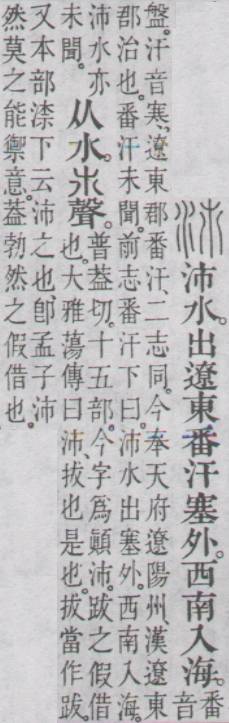 沛水。出遼東番汗塞外。西南入海。番音
盤。汗音寒、遼東郡番汗、二志同。今奉天府遼陽州、漢遼東
郡治也。番汗未聞。前志番汗下曰。沛水出塞外。西南入海。
沛水亦
未聞。
从水。𣎵聲。
普葢切。十五部。今字爲顚沛。跋之假借
也。大雅蕩傳曰沛、拔也是也。拔當作跋。
又本部渿下云沛之也、卽孟子沛
然莫之能禦意。葢勃然之假借也。